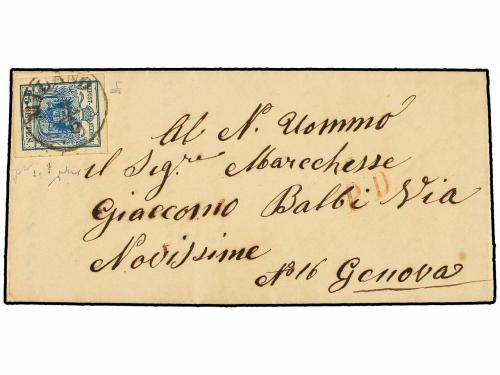 MILANO
Al N. Uommo
il Sigre Marcchesse
Giaccomo Balbi Via
P.D
Novissime
No 16 Genova